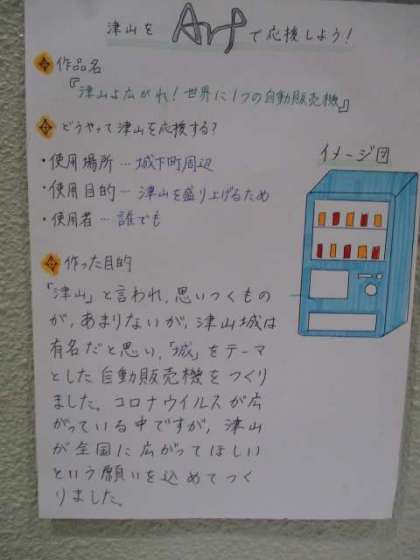 津山を Art で応援しよう!
作品名
『津山よ広がれ!世界に1つの自動販売機』
どうやって津山を応援する?
・使用場所…城下町周辺
・使用目的…津山を盛り上げるため
・使用者…誰でも
イメージ図
作った目的
「津山」と言われ、思いつくもの
が、あまりないが、津山城は
有名だと思い、「城」をテーマ
とした自動販売機をつくり
ました。コロナウイルスが広
がっている中ですが、津山
が全国に広がってほしい
という願いを込めてつく
りました。